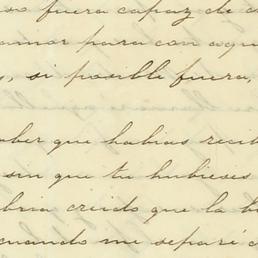 fuera capaz de
amor para con aqu
si posible fuera,
aber que habias recib
sin que tu hubieses
bria creido que la
cuando me separé